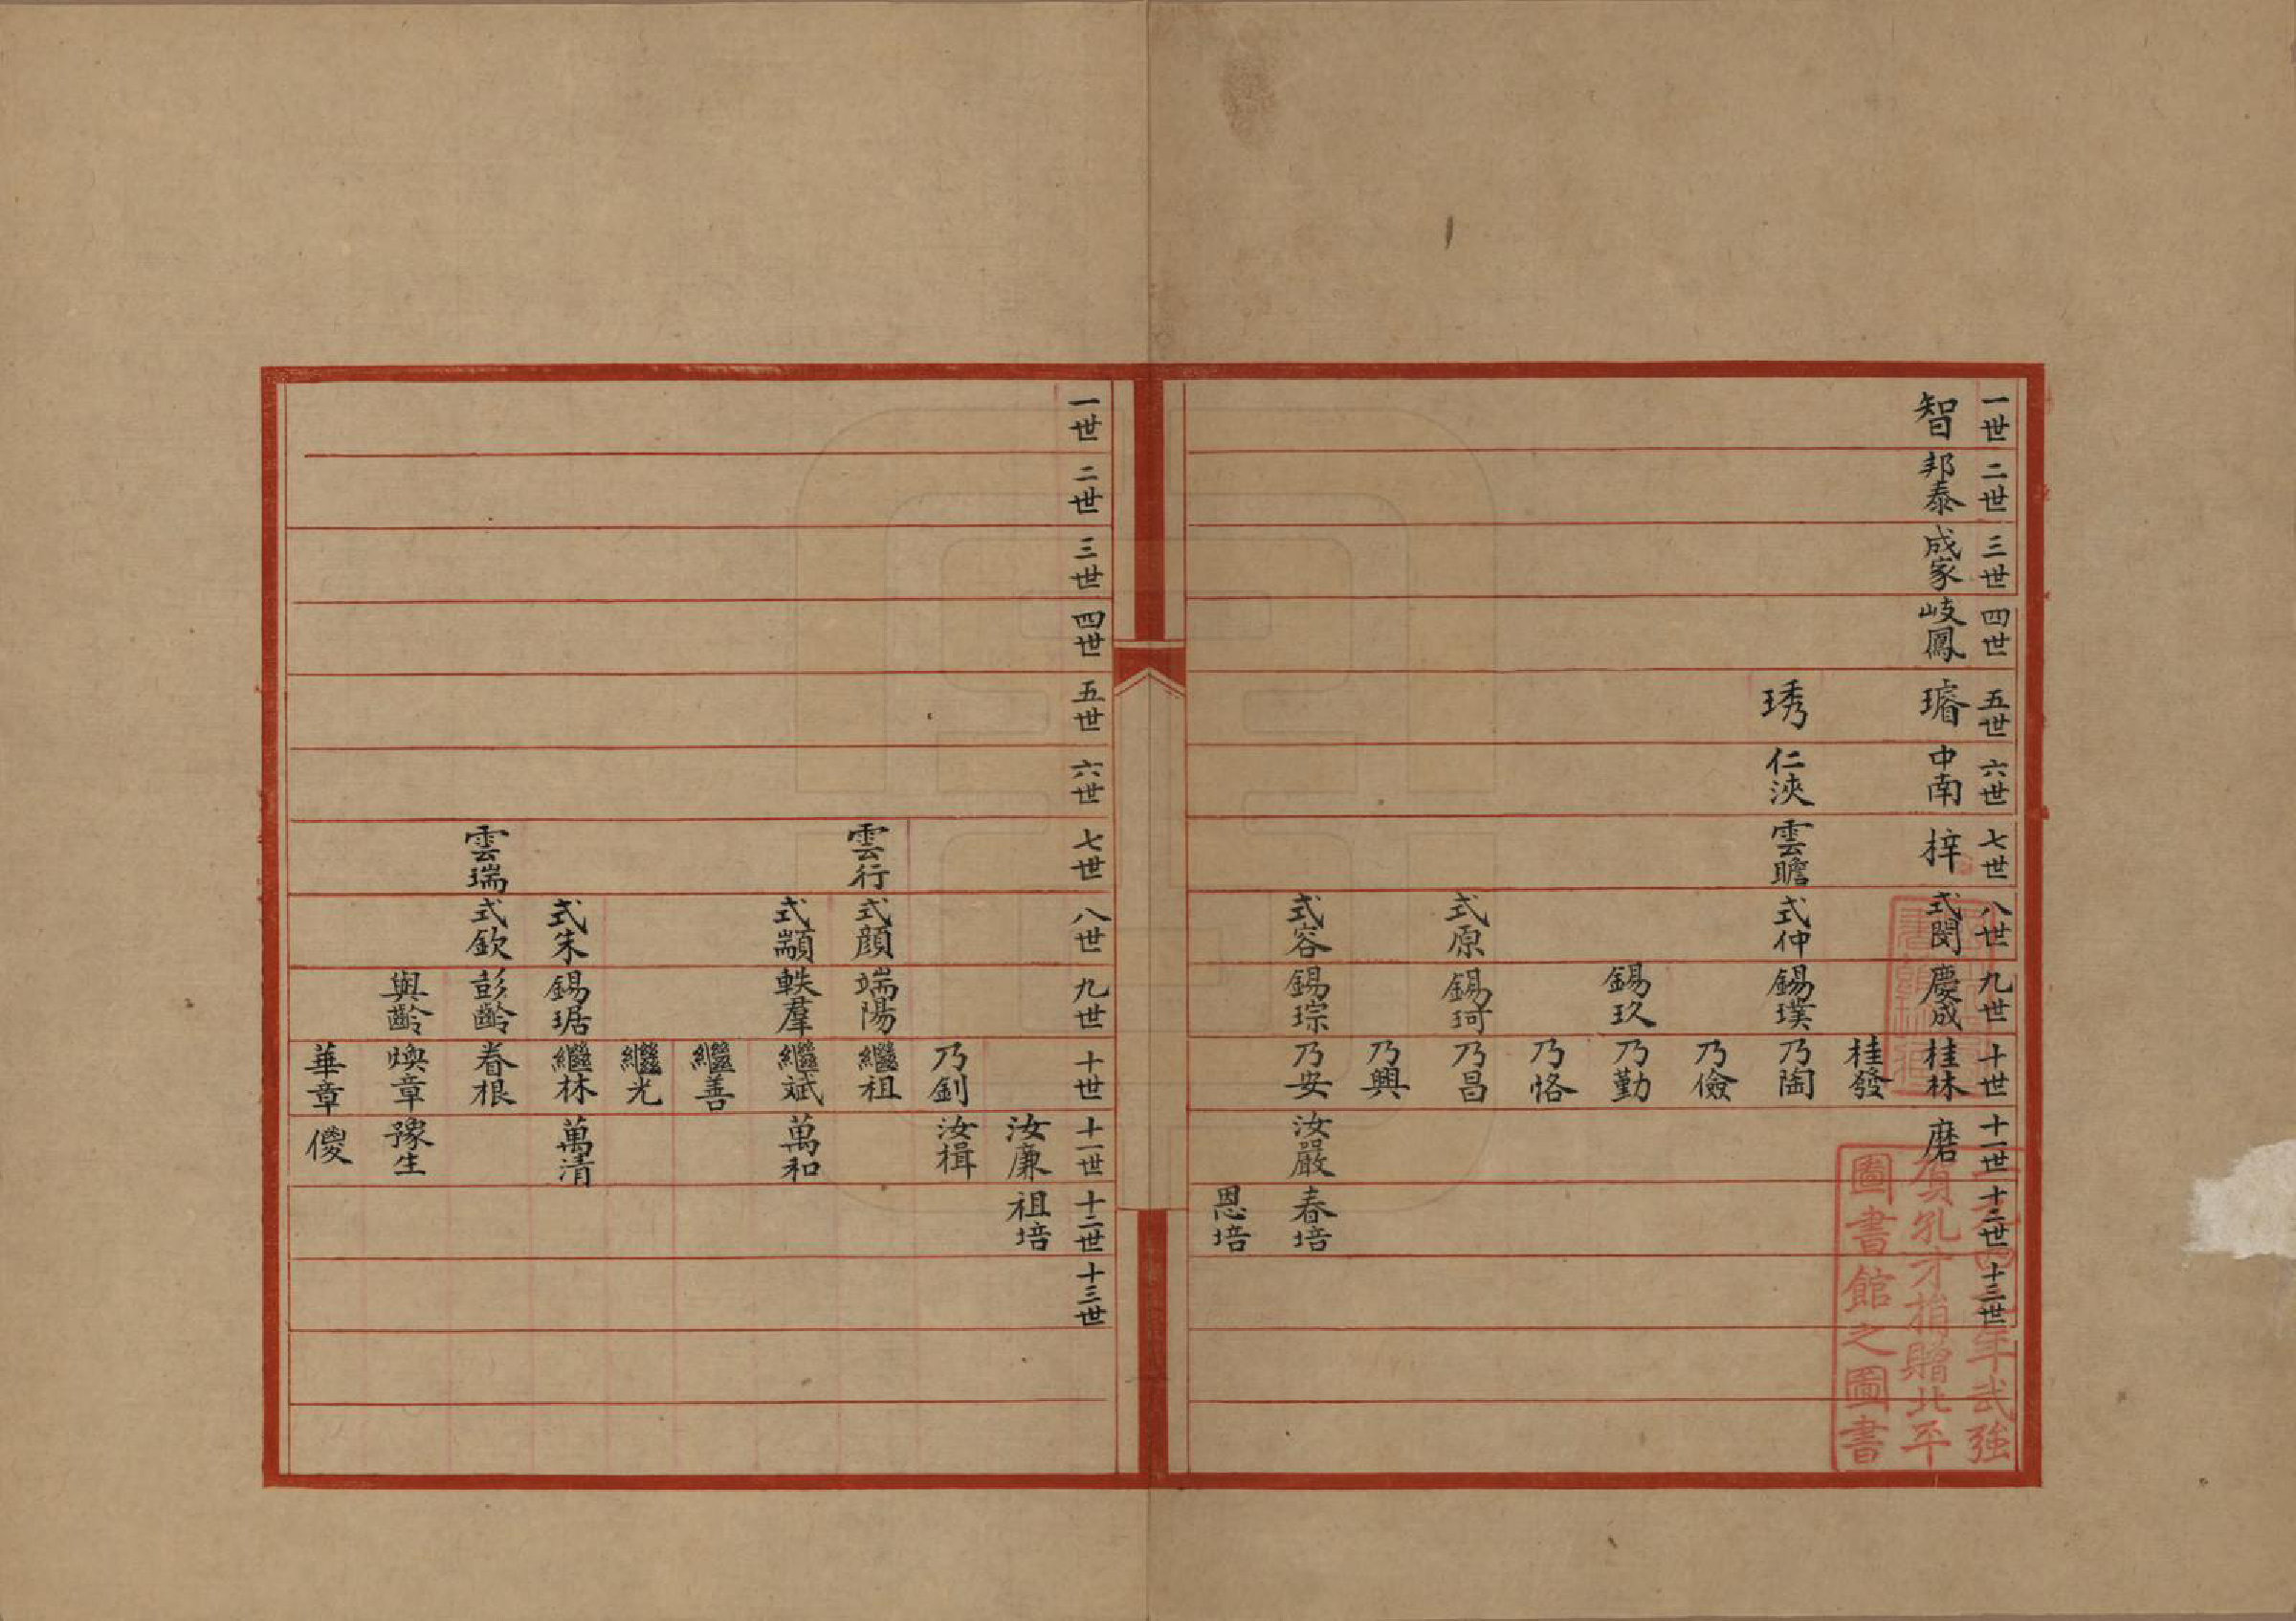 一世 二世 三世 四世 五世 六世 七世 八世 九世 十世 十一世 十二世 十三世
智 邦泰 成家 岐鳳 璿 中南 梓 式閔 慶成 桂林 磨
桂發
琇 仁浹 雲瞻 式仲 錫璞 乃陶
乃儉
錫玖 乃勤
乃恪
式原 錫珂 乃昌
乃興
式容 錫琮 乃安 汝嚴 春培
恩培
一世 二世 三世 四世 五世 六世 七世 八世 九世 十世 十一世 十二世 十三世
汝廉 祖培
乃釗 汝楫
雲行 式顔 端陽 繼祖
式顓 軼羣 繼斌 萬和
繼善
繼光
式朱 錫琚 繼林 萬清
雲瑞 式欽 彭齡 眷根
與齡 煥章 豫生
華章 儍
年武強
賀孔才捐贈北平
圖書館之圖書